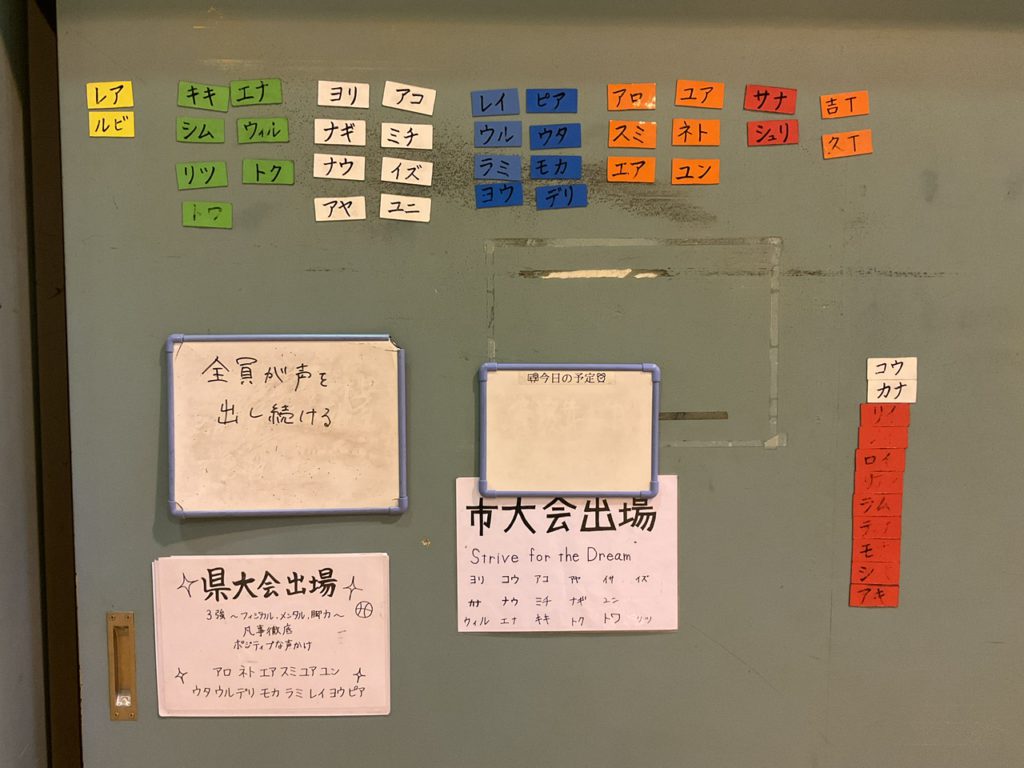 レア
ルビ
キキ エナ
シム ウィル
リツ トク
トワ
ヨリ アコ
ナギ ミチ
ナウ イズ
アヤ ユニ
レイ ピア
ウル ウタ
ラミ モカ
ヨウ デリ
アロ ユア
スミ ネト
エア ユン
サナ
シュリ
吉T
久T
全員が声を
出し続ける
今日の予定
コウ
カナ
ロイ
ジム
モ
シ
アキ
市大会出場
Strive for the Dream
ヨリ コウ アコ アヤ イサ イズ
カナ ナウ ミチ ナギ ユン
ウィル エナ キキ トク トワ リツ
県大会出場
3強～フィジカル,メンタル,脚力～
凡事徹底
ポジティブな声かけ
アロ ネト エア スミ ユア ユン
ウタ ウル デリ モカ ラミ レイ ヨウ ピア